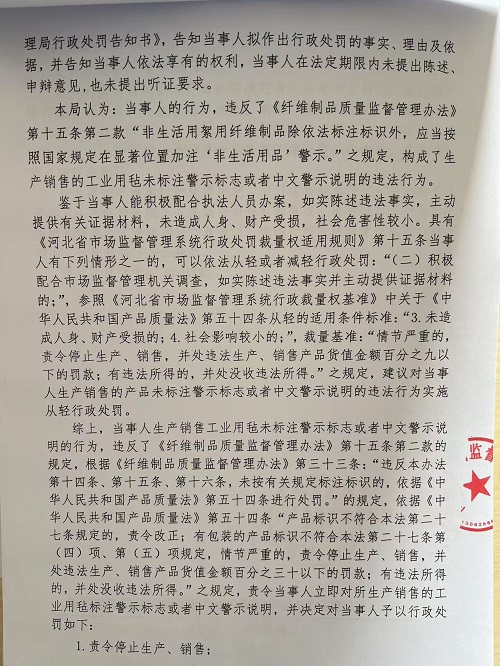 理局行政处罚告知书》，告知当事人拟作出行政处罚的事实、理由及依
据，并告知当事人依法享有的权利，当事人在法定期限内未提出陈述、
申辩意见，也未提出听证要求。
本局认为：当事人的行为，违反了《纤维制品质量监督管理办法》
第十五条第二款“非生活用絮用纤维制品除依法标注标识外，应当按
照国家规定在显著位置加注‘非生活用品’警示。”之规定，构成了生
产销售的工业用毡未标注警示标志或者中文警示说明的违法行为。
鉴于当事人能积极配合执法人员办案，如实陈述违法事实，主动
提供有关证据材料，未造成人身、财产受损，社会危害性较小。具有
《河北省市场监督管理系统行政处罚裁量权适用规则》第十五条当事
人有下列情形之一的，可以依法从轻或者减轻行政处罚：“（二）积极
配合市场监督管理机关调查，如实陈述违法事实并主动提供证据材料
的；”，参照《河北省市场监督管理系统行政裁量权基准》中关于《中
华人民共和国产品质量法》第五十四条从轻的适用条件标准：“3.未造
成人身、财产受损的；4.社会影响较小的；”，裁量基准：“情节严重的，
责令停止生产、销售，并处违法生产、销售产品货值金额百分之九以
下的罚款；有违法所得的，并处没收违法所得。”之规定，建议对当事
人生产销售的产品未标注警示标志或者中文警示说明的违法行为实施
从轻行政处罚。
综上，当事人生产销售工业用毡未标注警示标志或者中文警示说
明的行为，违反了《纤维制品质量监督管理办法》第十五条第二款的
规定，根据《纤维制品质量监督管理办法》第三十三条：“违反本办法
第十四条、第十五条、第十六条，未按有关规定标注标识的，依据《中
华人民共和国产品质量法》第五十四条进行处罚。”的规定，依据《中
华人民共和国产品质量法》第五十四条“产品标识不符合本法第二十
七条规定的，责令改正；有包装的产品标识不符合本法第二十七条第
（四）项、第（五）项规定，情节严重的，责令停止生产、销售，并
处违法生产、销售产品货值金额百分之三十以下的罚款；有违法所得
的，并处没收违法所得。”之规定，责令当事人立即对所生产销售的工
业用毡标注警示标志或者中文警示说明，并决定对当事人予以行政处
罚如下：
1.责令停止生产、销售；
监督